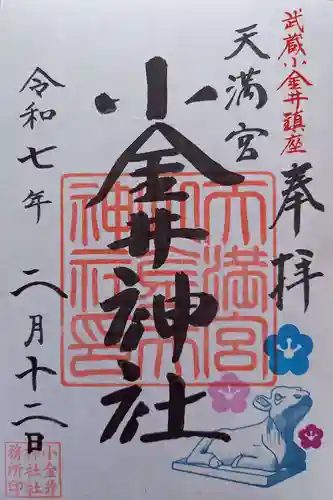 武蔵小金井鎮座
奉拝
天満宮
小金井神社
令和七年
二月十二日
天満宮
神社
小金井
神社社
務所印